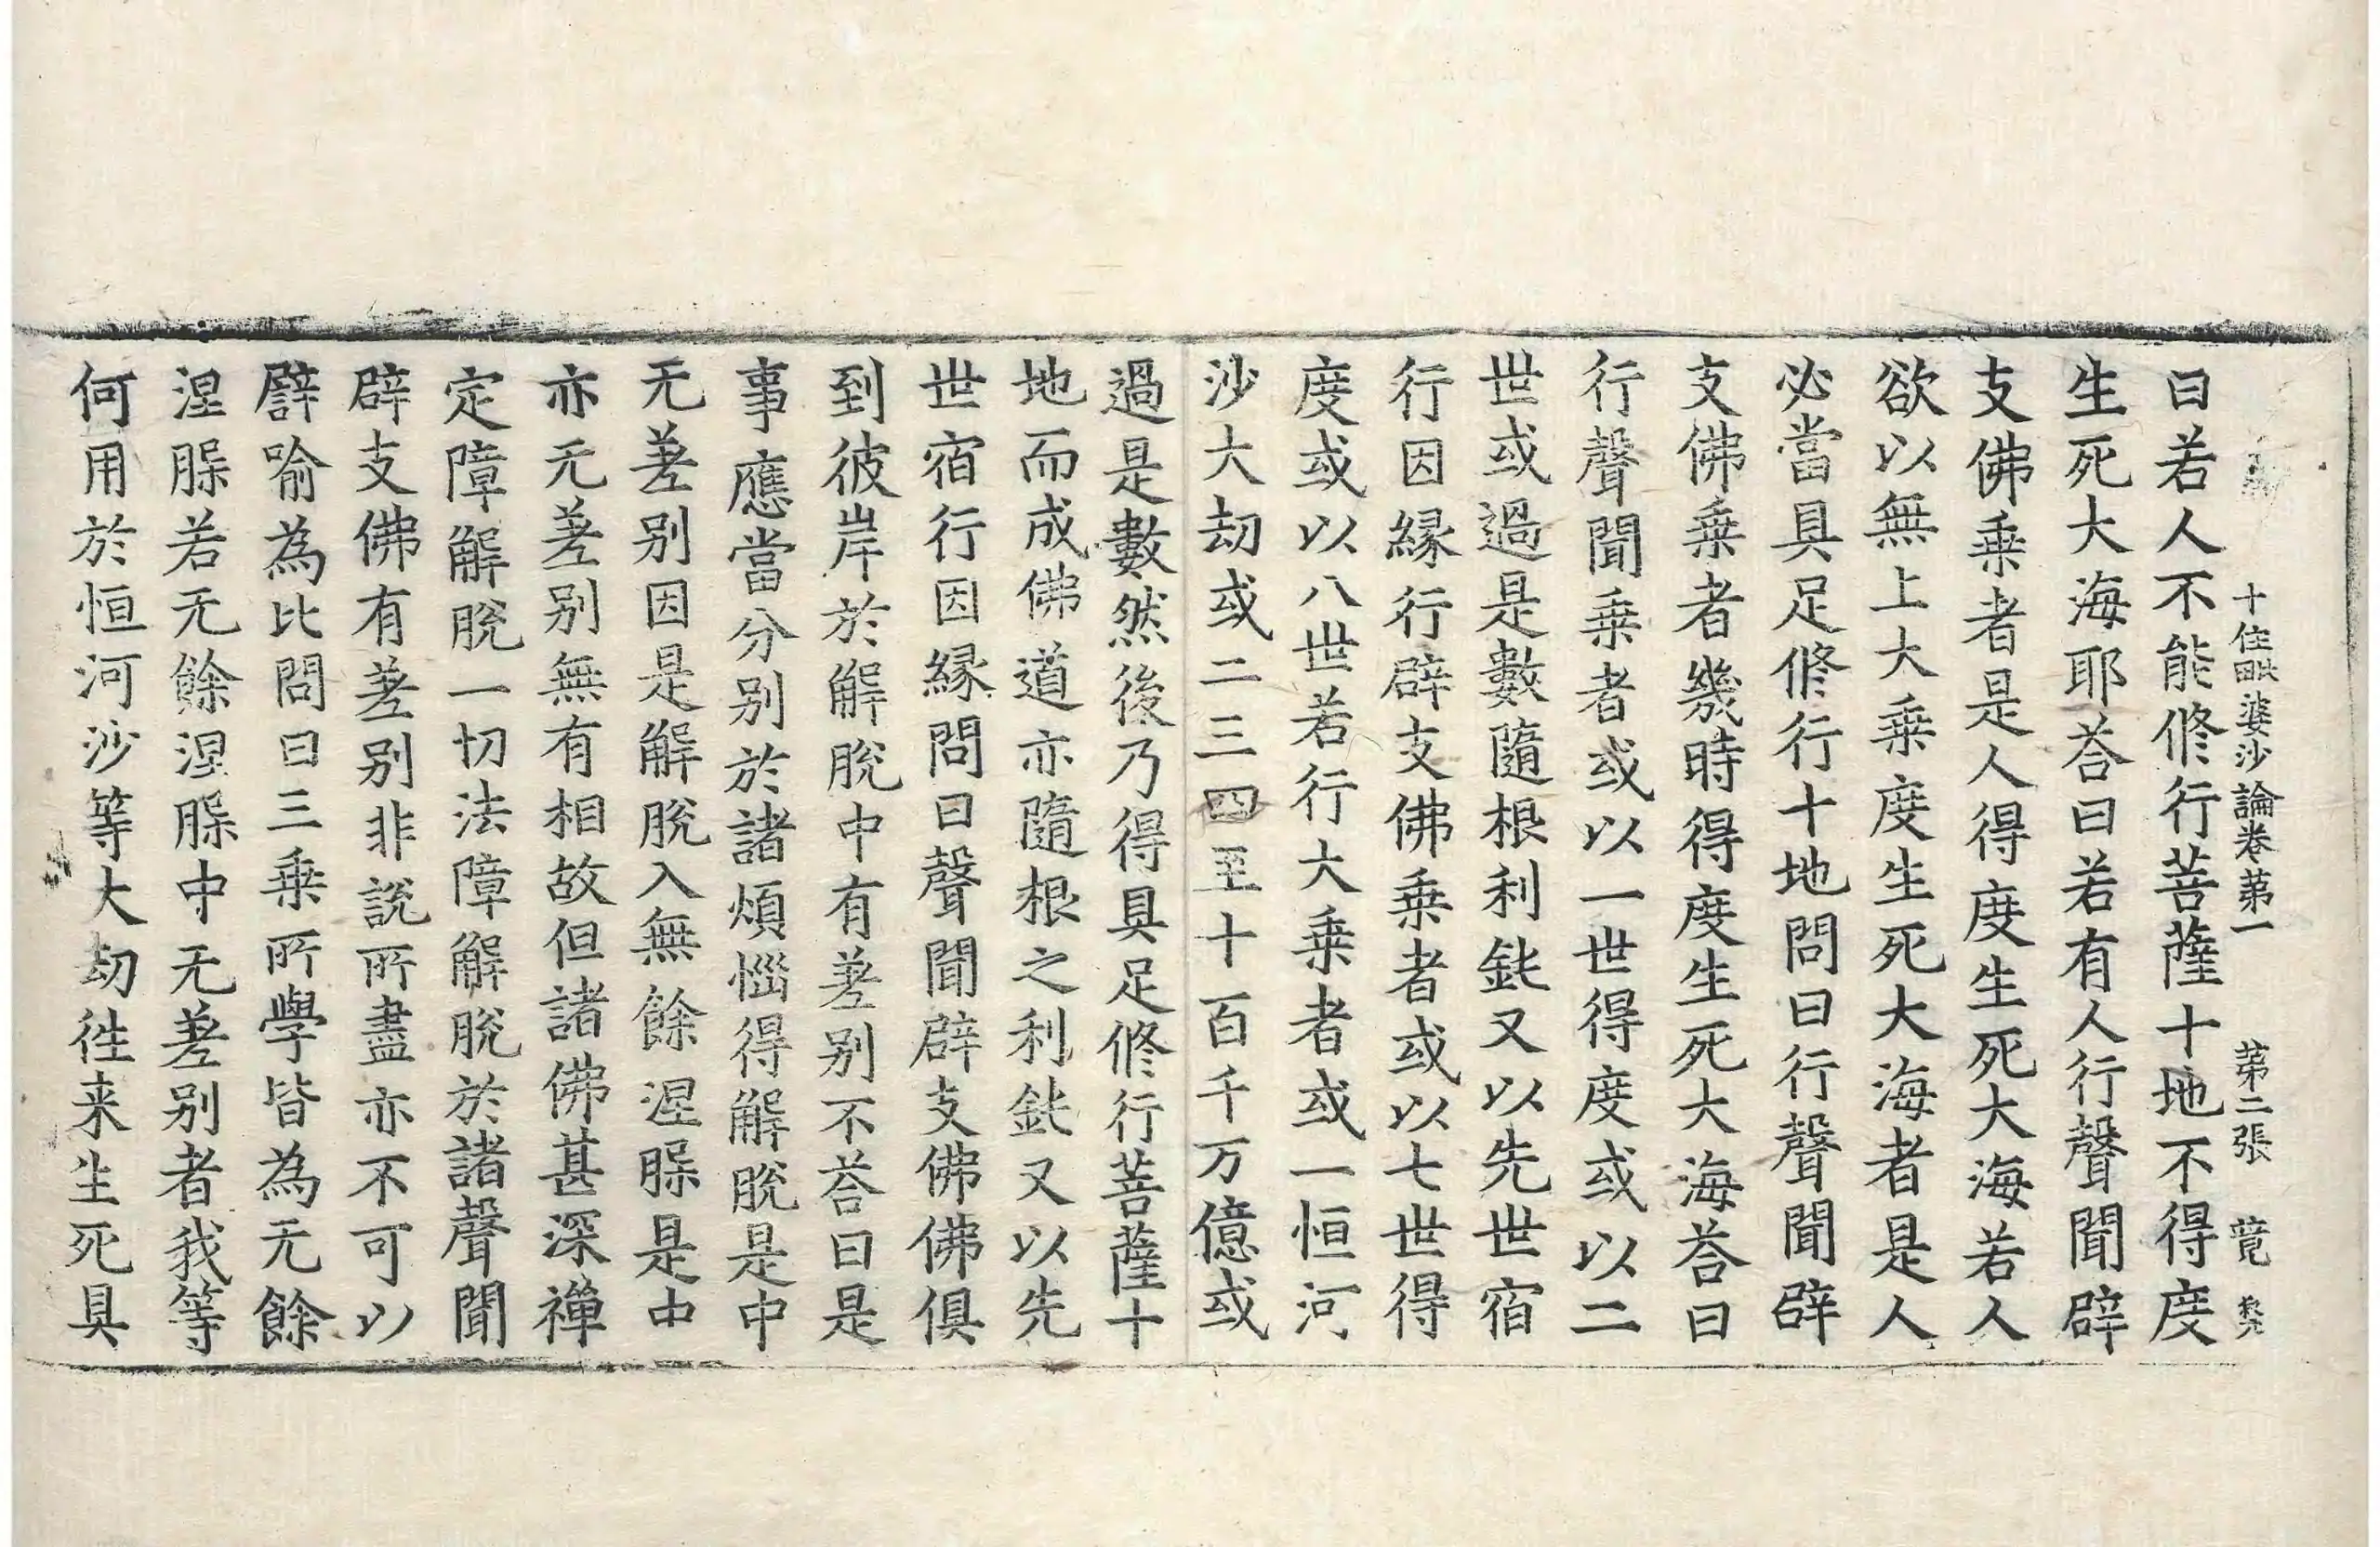 十住毗婆沙論卷第一 第二張 竟
曰若人不能修行菩薩十地不得度
生死大海耶荅曰若有人行聲聞辟
支佛乗者是人得度生死大海若人
欲以無上大乗度生死大海者是人
必當具足修行十地問曰行聲聞辟
支佛乗者幾時得度生死大海荅曰
行聲聞乗者或以一世得度或以二
世或過是數隨根利鈍又以先世宿
行因縁行辟支佛乗者或以七世得
度或以八世若行大乗者或一恒河
沙大劫或二三四至十百千万億或
過是數然後乃得具足修行菩薩十
地而成佛道亦隨根之利鈍又以先
世宿行因縁問曰聲聞辟支佛佛俱
到彼岸於解脫中有差别不荅曰是
事應當分别於諸煩惱得解脫是中
无差别因是解脫入無餘涅槃是中
亦无差别無有相故但諸佛甚深禪
定障解脫一切法障解脫於諸聲聞
辟支佛有差别非說所盡亦不可以
譬喻為比問曰三乗所學皆為无餘
涅槃若无餘涅槃中无差别者我等
何用於恒河沙等大劫徃来生死具